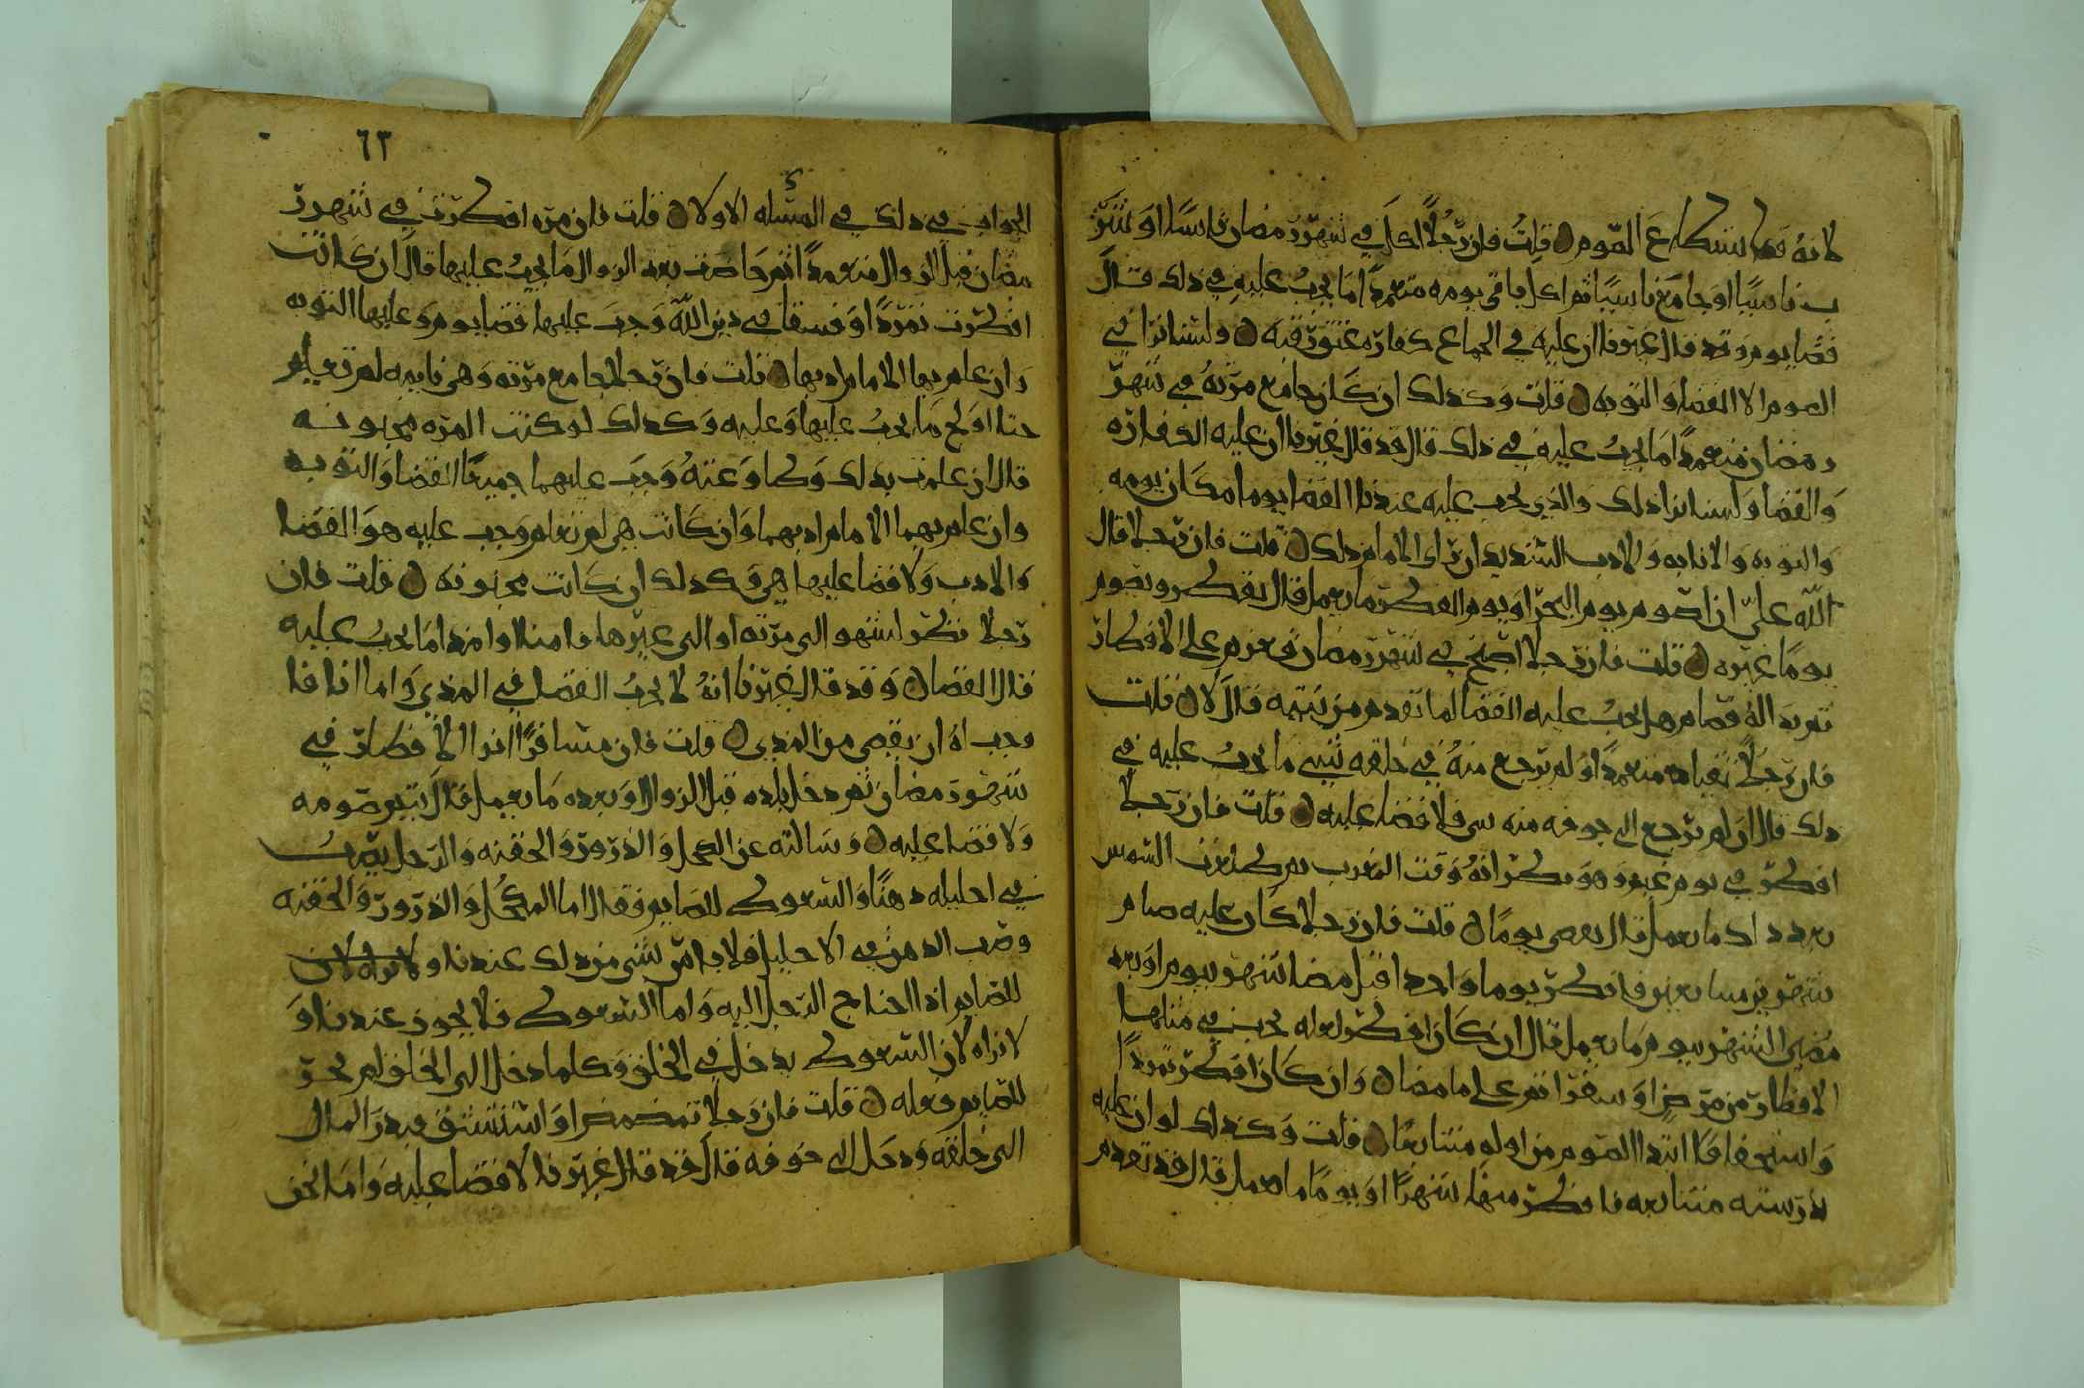 لانه قد استطاع الصوم ۝ قلت فان رجلا اكل في شهر رمضان ناسيا او شر
ب ناسيا او جامع ناسيا ثم اكل باقي يومه متعمدا ما يجب عليه في ذلك قال
قضا يوم وقد قال غيرنا ان عليه في الجماع كفارة عتق رقبه ۝ ولسنا نرا في
الصوم الا القضا والتوبه ۝ قلت وكذلك ان كان جامع مرته في شهر
رمضان متعمدا ما يجب عليه في ذلك قال قد قال غيرنا ان عليه الكفاره
والقضا ولسنا نرا ذلك والذي يجب عليه عندنا القضا يوما مكان يومه
والتوبه والانابه والادب الشديد ان را الامام ذلك ۝ قلت فان رجلا قال
الله علي ان اصوم يوم النحر او يوم الفطر ما يعمل قال يفطر ويصوم
يوما غيره ۝ قلت فان رجلا اصبح في شهر رمضان فعزم على الافطار
ثم بدا له فصام هل يجب عليه القضا لما تقدم من نيته قال لا ۝ قلت
فان رجلا تقيا متعمدا او لم يرجع منه في حلقه شي ما يجب عليه في
ذلك قال ان لم يرجع الى جوفه منه شي فلا قضا عليه ۝ قلت فان رجلا
افطر في يوم غيم وهو يظن انه وقت المغرب ثم طلعت الشمس
بعد ذلك ما يعمل قال يقضي يوما ۝ قلت فان رجلا كان عليه صيام
شهرين متتابعين فافطر يوما واحدا قبل مضا شهر بيوم او بعد
مضي الشهر بيوم ما يعمل قال ان كان افطر لعله يجب في مثلها
الافطار من مرض او سفر اتم على ما مضا ۝ وان كان افطر تمردا
واستخفافا ابتدا الصوم من اوله متتابعا ۝ قلت وكذلك لو ان عليه
نذر سنه متتابعه فافطر منها شهرا او يوما ما يعمل قال قد تقدم
٦٣
الجواب في ذلك في المسئله الاولا ۝ قلت فان مره افطرت في شهر ر
مضان قبل الزوال متعمدا ثم حاضت بعد الزوال ما يجب عليها قال ان كانت
افطرت تمردا او فسقا في دين الله وجب عليها قضا يوم وعليها التوبه
وان علم بها الامام ادبها ۝ قلت فان رجلا جامع مرته وهي نايمه لم تعلم
حتا اولج ما يجب عليها وعليه وكذلك لو كنت المره مجنونه
قال ان علمت بذلك وطاوعته وجب عليهما جميعا القضا والتوبه
وان علم بهما الامام ادبهما وان كانت هي لم تعلم وجب عليه هو القضا
والادب ولا قضا عليها هي وكذلك ان كانت مجنونه ۝ قلت فان
رجلا نظر لشهو الى مرته او الى غيرها فامنا او امذا ما يجب عليه
قال القضا ۝ وقد قال غيرنا انه لا يجب القضا في المذي واما انا فا
وجب له ان يقضي من المذي ۝ قلت فان مسافرا نوا الافطار في
شهر رمضان ثم دخل بلده قبل الزوال او بعده ما يعمل قال يتم صومه
ولا قضا عليه ۝ وسالته عن الكحل والذرور والحقنه والرجل يصب
في احليله دهنا والسعوط للصايم فقال اما الكحل والذرور والحقنه
وصب الدهن في الاحليل فلا باس بشي من ذلك عندنا و لا نراه لان
للصايم اذا احتاج الرجل اليه واما السعوط فلا يجوز عندنا و
لا نراه لان السعوط يدخل في الحلق وكلما دخل الى الحلق لم يجز
للصايم فعله ۝ قلت فان رجلا تمضمض او استنشق فبدر المال
الى حلقه ودخل الى جوفه قال قد قال غيرنا لا قضا عليه واما نحن